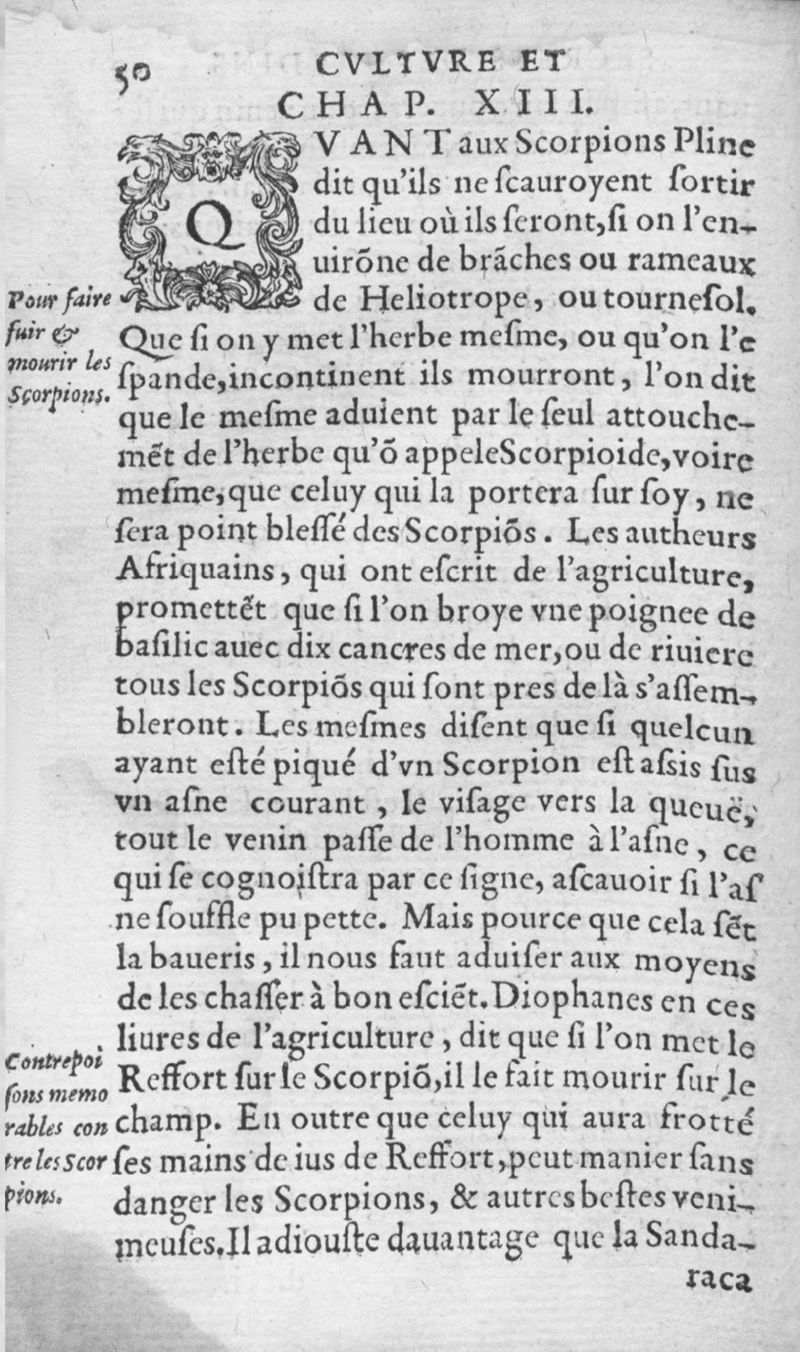 50 CVLTVRE ET
CHAP. XIII.
QVANT aux Scorpions Pline
dit qu'ils ne ſcauroyent ſortir
du lieu où ils ſeront, ſi on l'en-
uirõne de brãches ou rameaux
de Heliotrope, ou tourneſol.
Que ſi on y met l'herbe meſme, ou qu'on l'e
ſpande, incontinent ils mourront, l'on dit
que le meſme aduient par le ſeul attouche-
mẽt de l'herbe qu'õ appele Scorpioide, voire
meſme, que celuy qui la portera ſur ſoy, ne
ſera point bleſſé des Scorpiõs. Les autheurs
Afriquains, qui ont eſcrit de l'agriculture,
promettẽt que ſi l'on broye vne poignee de
baſilic auec dix cancres de mer, ou de riuiere
tous les Scorpiõs qui ſont pres de là s'aſſem-
bleront. Les meſmes diſent que ſi quelcun
ayant eſté piqué d'vn Scorpion eſt aſsis ſus
vn aſne courant, le viſage vers la queuë,
tout le venin paſſe de l'homme à l'aſne, ce
qui ſe cognoiſtra par ce ſigne, aſcauoir ſi l'aſ
ne ſouffle pu pette. Mais pource que cela ſẽt
la baueris, il nous faut aduiſer aux moyens
de les chaſſer à bon eſciẽt. Diophanes en ces
liures de l'agriculture, dit que ſi l'on met le
Reffort ſur le Scorpiõ, il le fait mourir ſur le
champ. En outre que celuy qui aura frotté
ſes mains de ius de Reffort, peut manier ſans
danger les Scorpions, & autres beſtes veni-
meuſes. Il adiouſte dauantage que la Sanda-
raca
Pour faire
fuir &
mourir les
Scorpions.
Contrepoi
ſons memo
rables con
tre les Scor
pions.